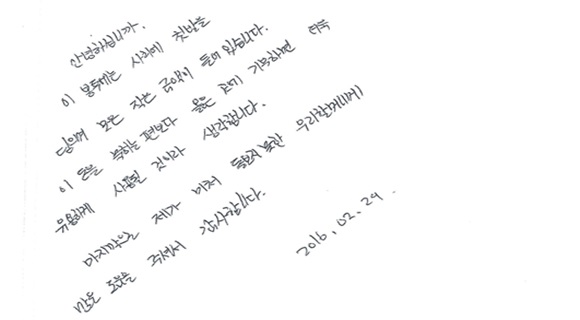 안녕하십니까.
이 봉투에는 사회에 첫발을
딛으며 모은 작은 금액이 들어 있습니다.
이 돈을 쓰는 편보다 좋은 곳에 기부하면 더욱
유용하게 사용될 것이라 생각합니다.
마지막으로 제가 미처 돌보지 못한 우리할머니께
많은 도움을 주셔서 감사합니다.
2016. 02. 29.